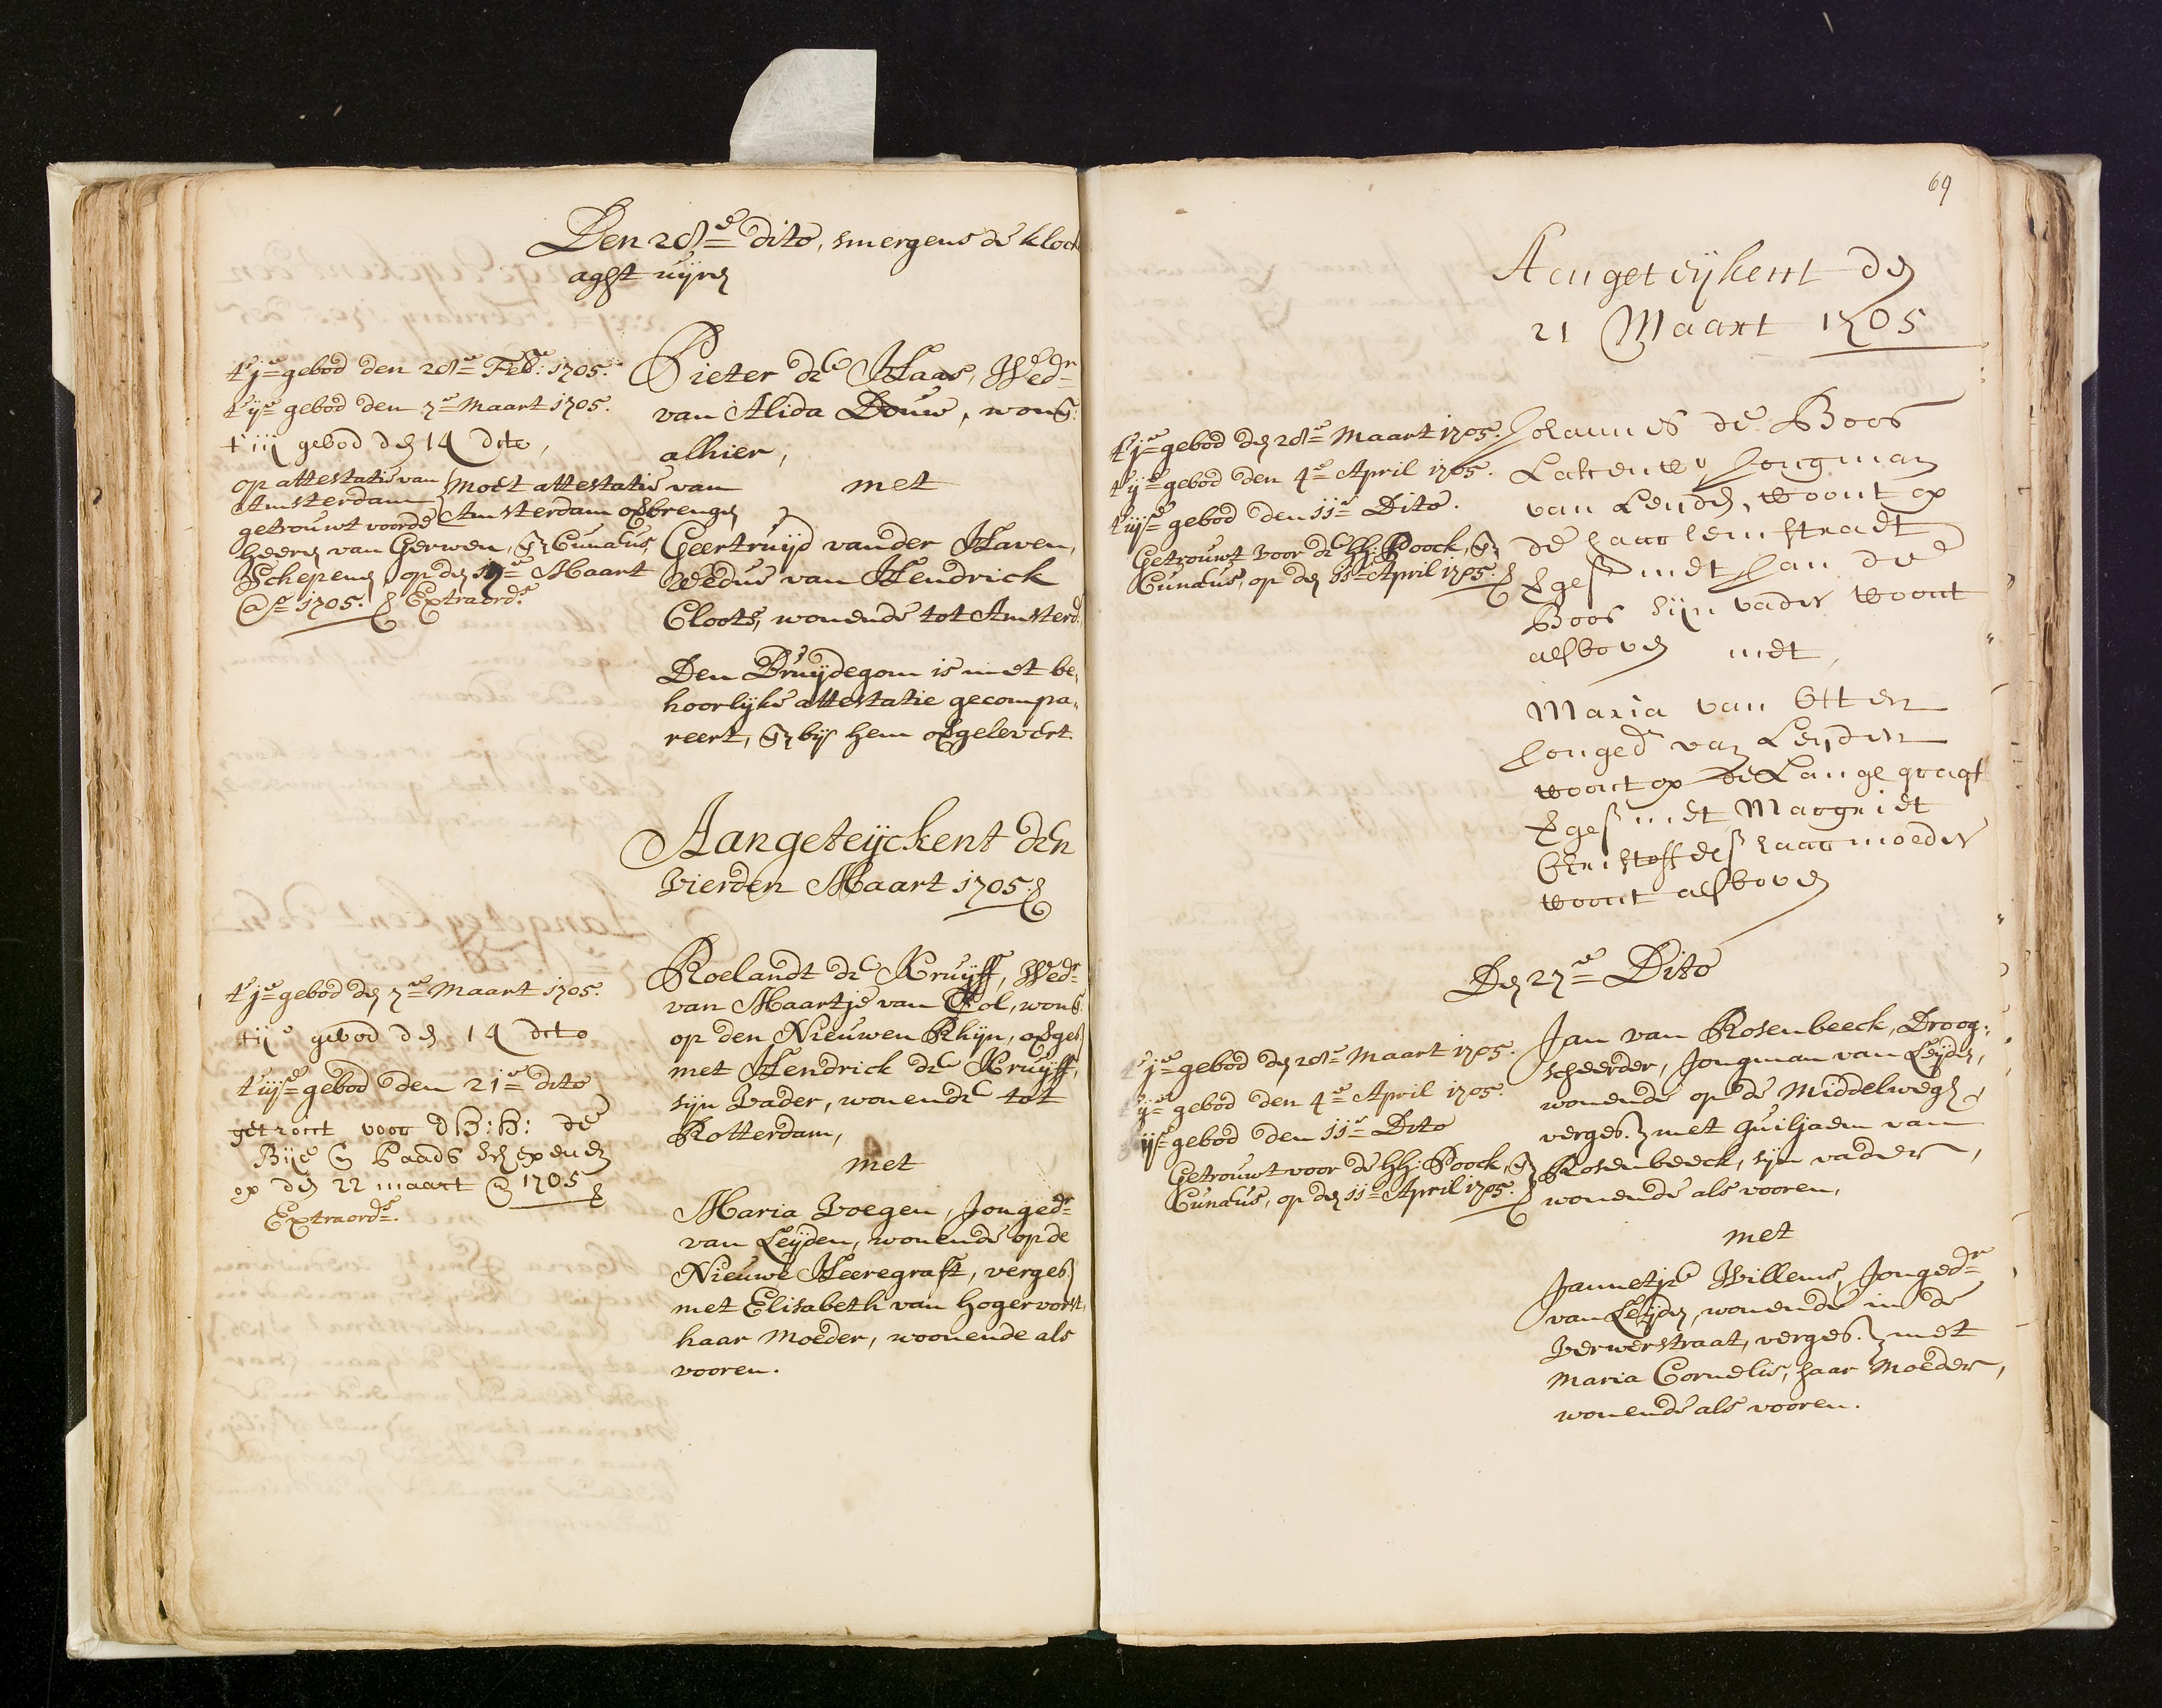 Den 28=e dito, smergens de klock
aght uijren
t' j=e gebod den 28=e Feb: 1705.
t' ij=e gebod den 7=e Maart 1705.
t' iij gebod den 14 dito,
op attestatie van
Amsterdam
getrouwt voor de
heeren van Gerwen, en Cunæus,
Schepenen, op den e Maart
a=o 1705. Extraord:e
moet attestatie van
Amsterdam opbrengen
Pieter de Haas, Wed=r
van Alida Douw, won:
alhier,
met
Geertruijd vander Haven,
wedue van Hendrick
Cloots, wonende tot Amsterd.
Den Bruijdegom is met be,,
hoorlijke attestatie gecompa,,
reert, en bij hem opgelevert.
Aangeteijckent den
Vierden Maart 1705.
t' j=e gebod den 7=e Maart 1705.
t ij e gebod den 14 dito
t' iij=e gebod den 21=e dito
getrout voor d h: h: de
Bije en Paads schepenen
op den 22 maart a 1705
Extraord=e.
Roelandt de Kruijff, Wed=r
van Maartje van Tol, won
op den Nieuwen Rhijn, verges
met Hendrick de Kruijff,
sijn Vader, wonende tot
Rotterdam,
met
Maria Voegen, Jonged=r
van Leijden, wonende op de
Nieuwe Heeregraft, verges.
met Elisabeth van Hogervorst,
haar Moeder, woonende als
vooren.
69
Aengeteijkent den
21 Maart 1705
t' j=e gebod den 28=e Maart 1705.
t' ij=e gebod den 4=e April 1705.
t' iij=e gebod den 11=e Dito.
Getrouwt voor de hh: Poock, en
Cunæus, op den 11=e April 1705.
Johannes de Boos
Jongman
van Leijden, woont op
de haarlemstraet
verges met Jan de
Boos sijn vader woont
als boven met,
Maria van Otten
Jonged van Leijden
woont op de Lange gragt
verges met Margriet
haar moeder
woont als boven
Den 27=e Dito
t' j=e gebod den 28=e Maart 1705.
t' ij=e gebod den 4=e April 1705.
t' iij=e gebod den 11=e Dito
Getrouwt voor de hh: Poock, en
Cunæus, op den 11=e April 1705.
Jan van Rosenbeeck, Droog:
scheerder, Jongman van Leijden,
wonende op de Middelwegh,
verges. met Guiljaem van
Rosenbeeck, sijn vader,
wonende als vooren,
met
Jannetje Willems, Jonged=r
van Leijden, wonende in de
Verwerstraat, verges. met
Maria Cornelis, haar Moeder,
wonende als vooren.